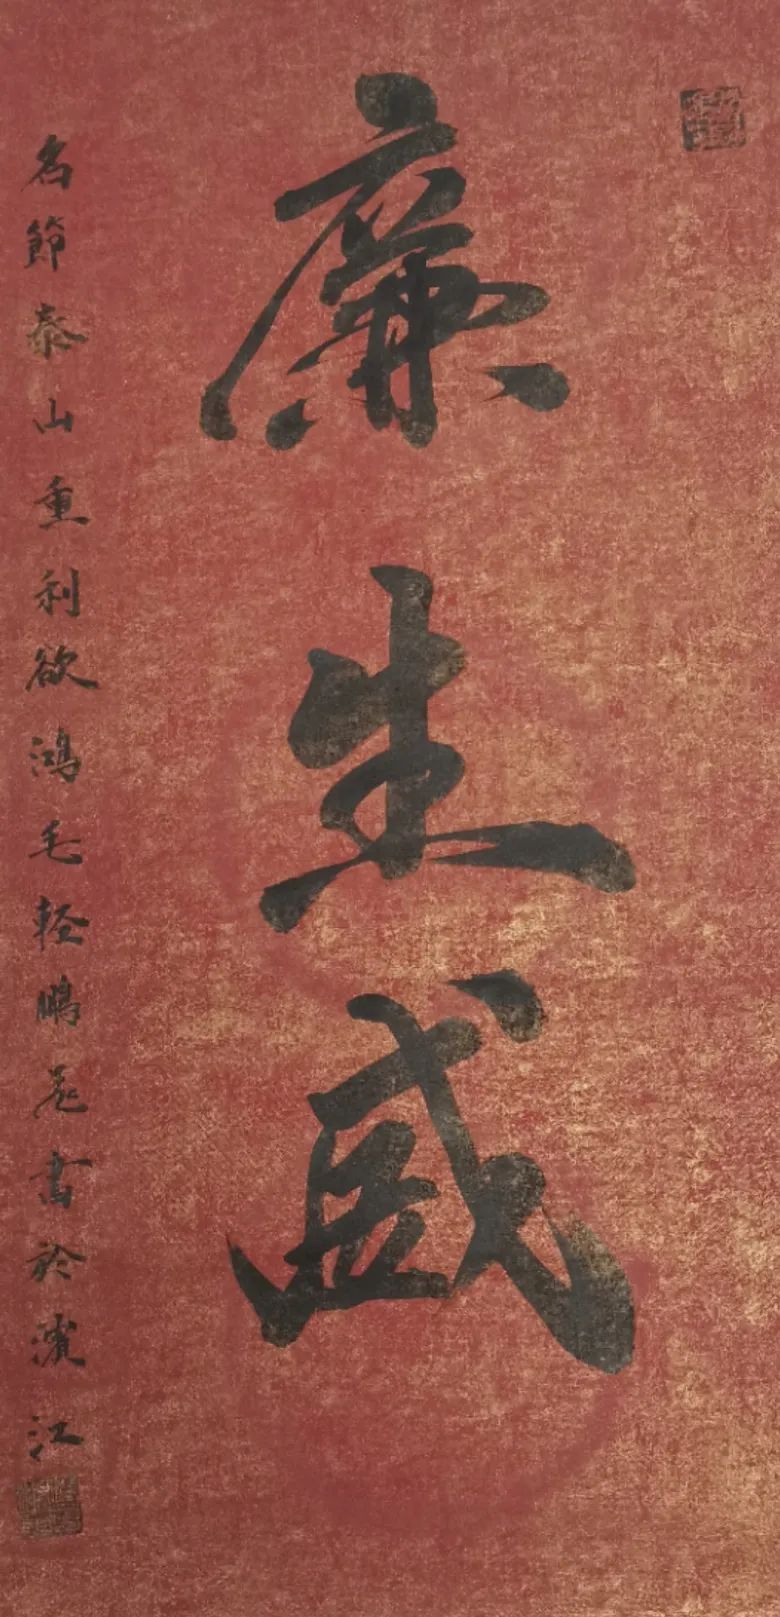 廉生威
名節泰山重利欲鴻毛輕鵬飛書於濱江